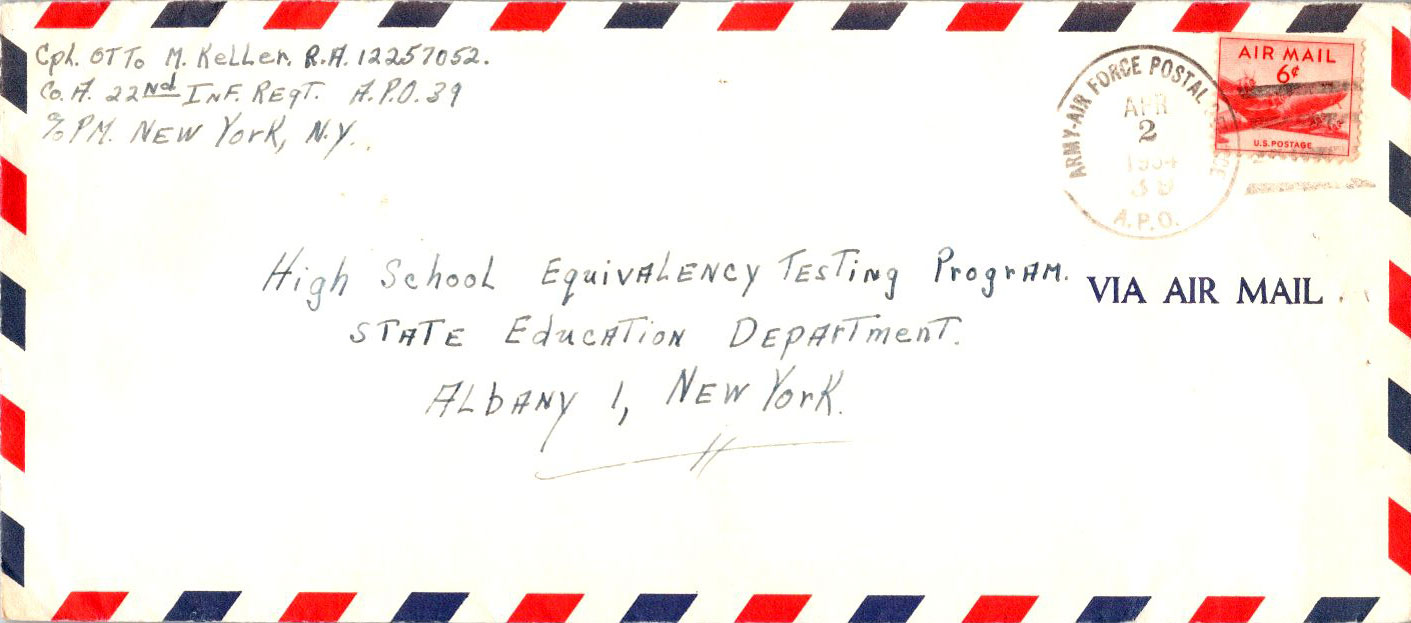 Cpl. OTTo M. KeLLer. R.A. 12257052.
Co. A. 22Nd INF. REgT. A.P.O. 39
℅ PM. NEW YorK, N.Y..
ARMY-AIR FORCE POSTAL
APR
2
1954
39
A.P.O.
AIR MAIL
6¢
U.S. POSTAGE
High School EquivALENCY TESTing ProgrAM.
VIA AIR MAIL
STATE EducATioN DEPArTmenT.
ALbANY 1, NEW YorK.